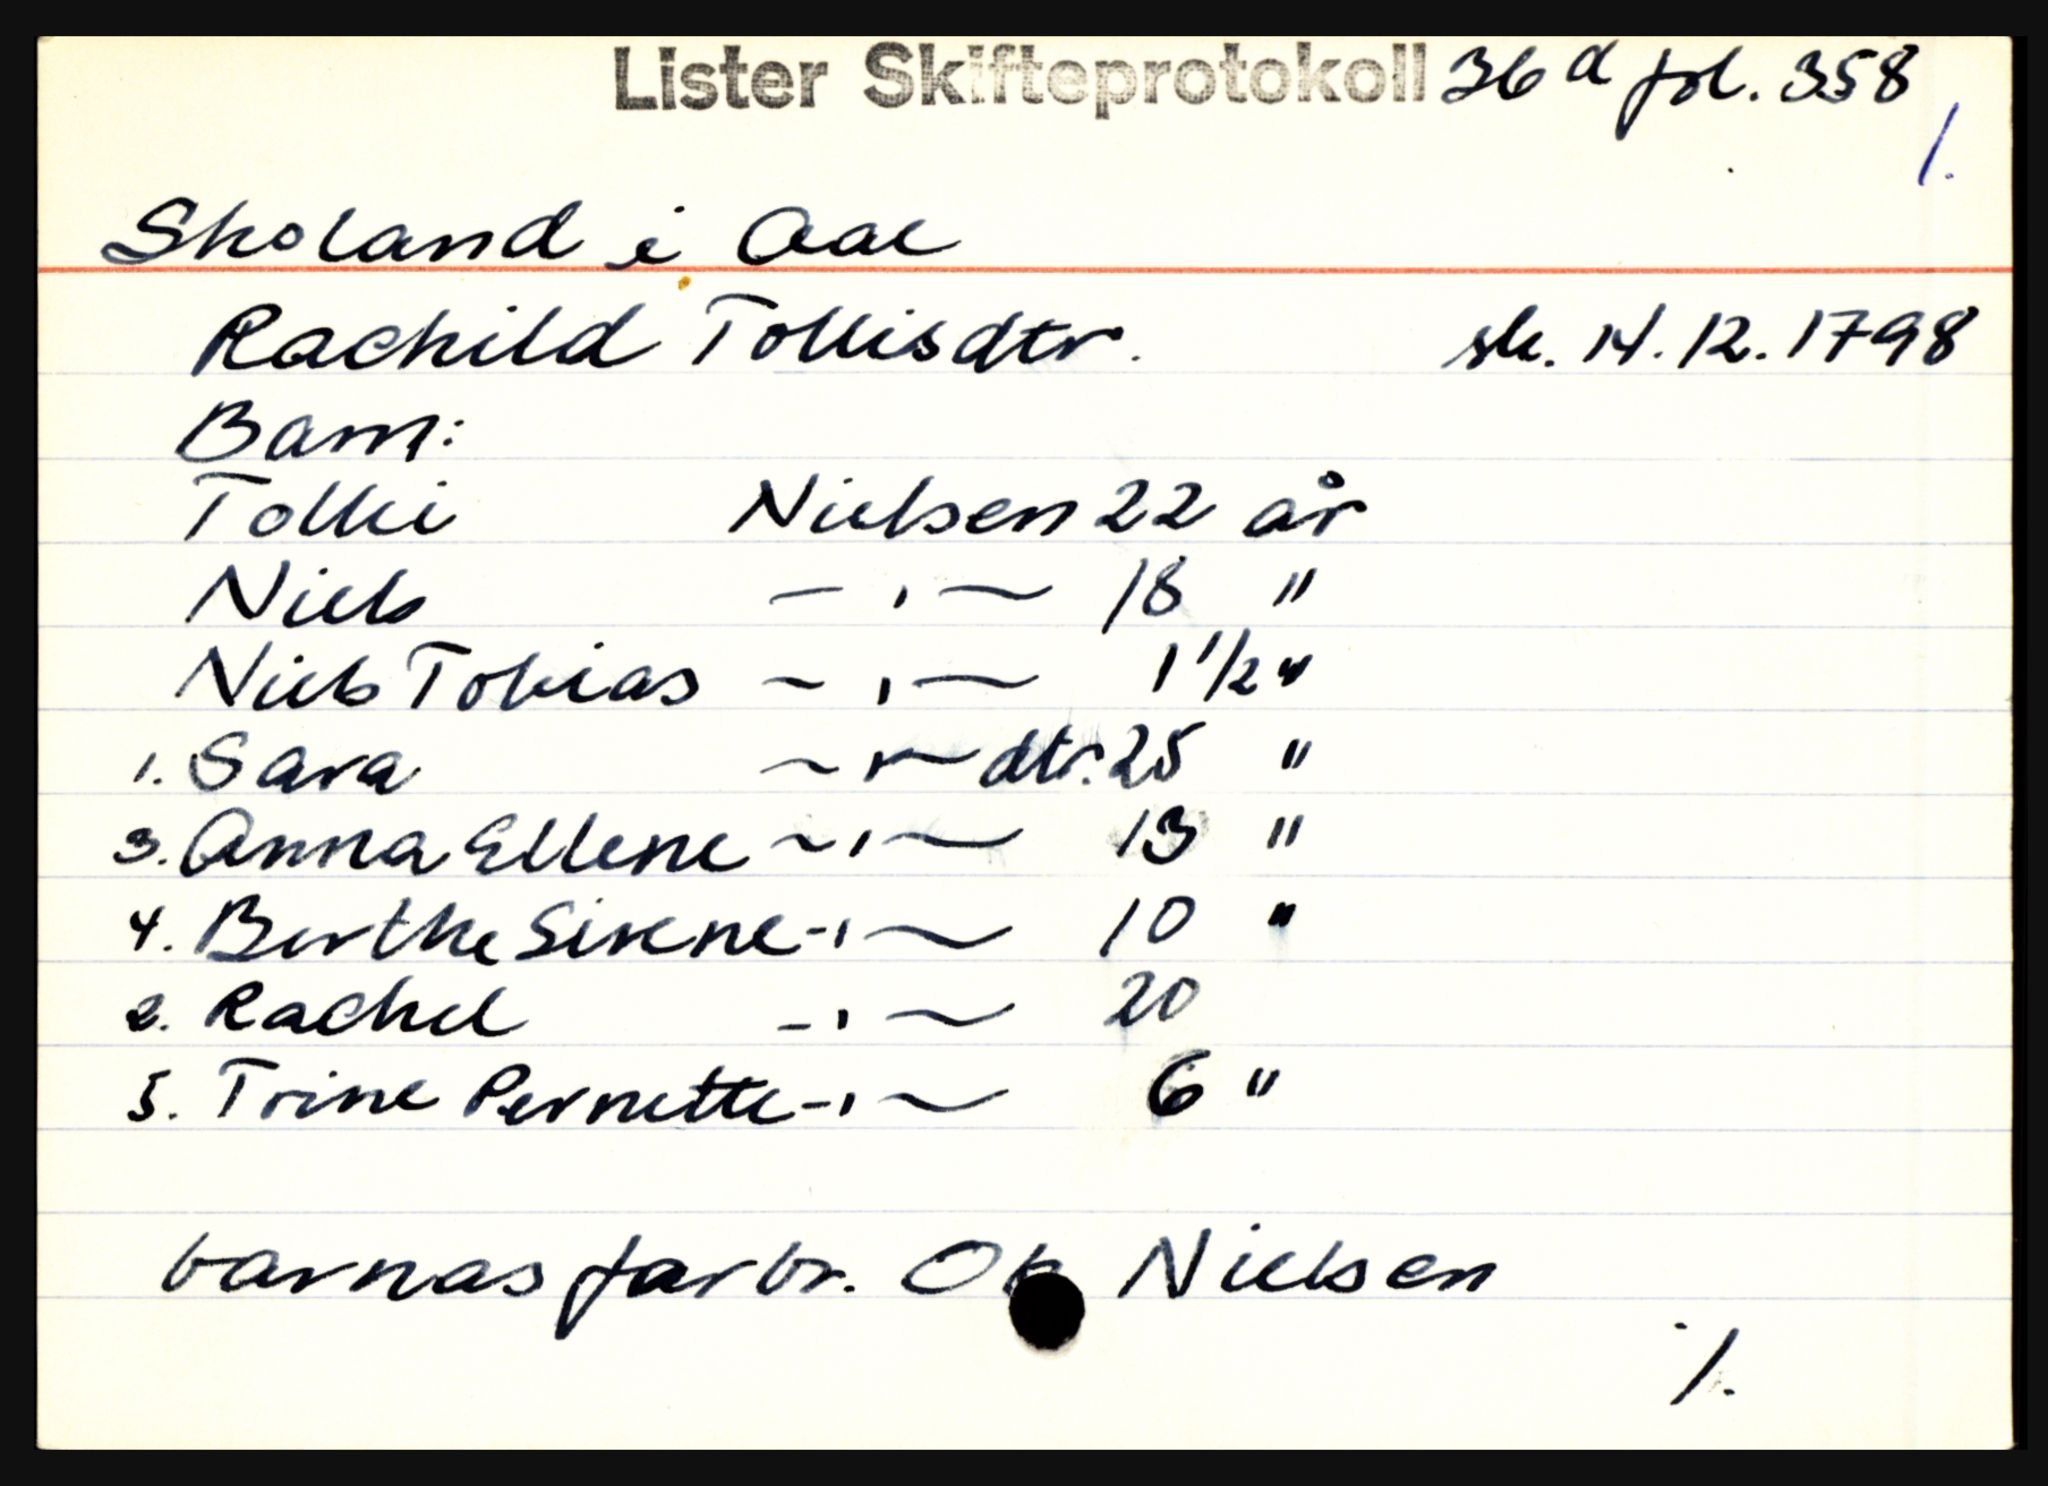 Lister Skifteprotokoll 36 a fol. 358
/.
Skoland i Aae
Rachild Tollisdtr. sk. 14.12.1798
Barn:
Tolli Nielsen 22 år
Niels – ' – 18 "
Niels Tobias – ' – 1 1/2 "
1. Sara – ' – dtr. 25 "
3. Anna Ellene – ' – 13 "
4. Berthe Sirene – ' – 10 "
2. Rachel – ' – 20
5. Trine Pernette – ' – 6 "
barnas farbr. Nielsen
./.